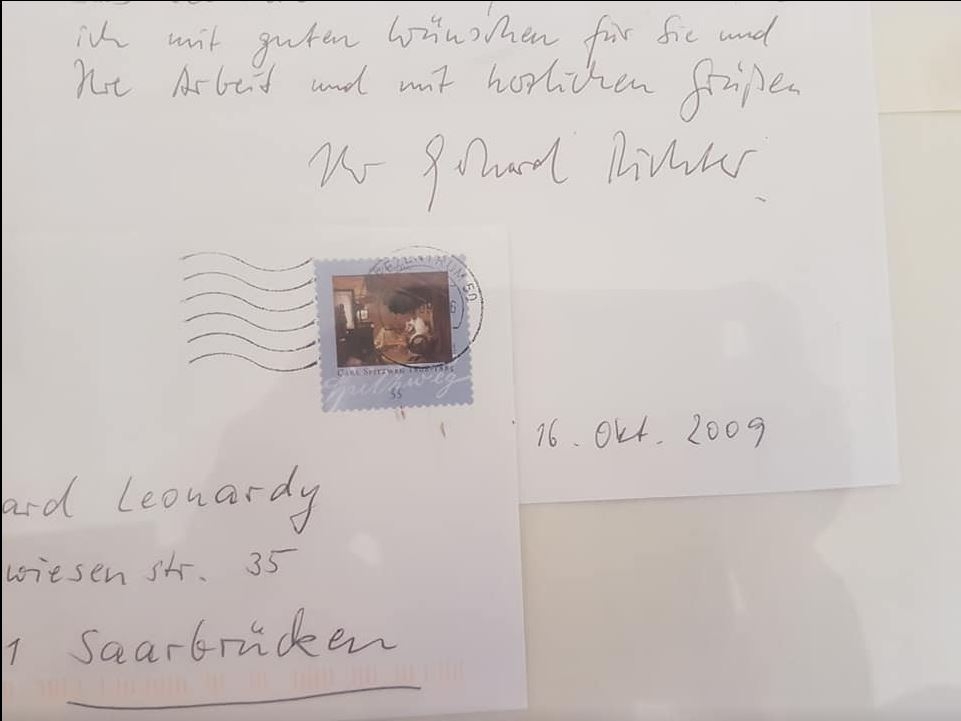 ich mit guten Wünschen für Sie und
Ihre Arbeit und mit herzlichen Grüßen
Ihr Gerhard Richter
BRIEFZENTRUM 50
6
CARL SPITZWEG 1808-1885
Spitzweg
55
16. Okt. 2009
ard Leonardy
wiesenstr. 35
1 Saarbrücken